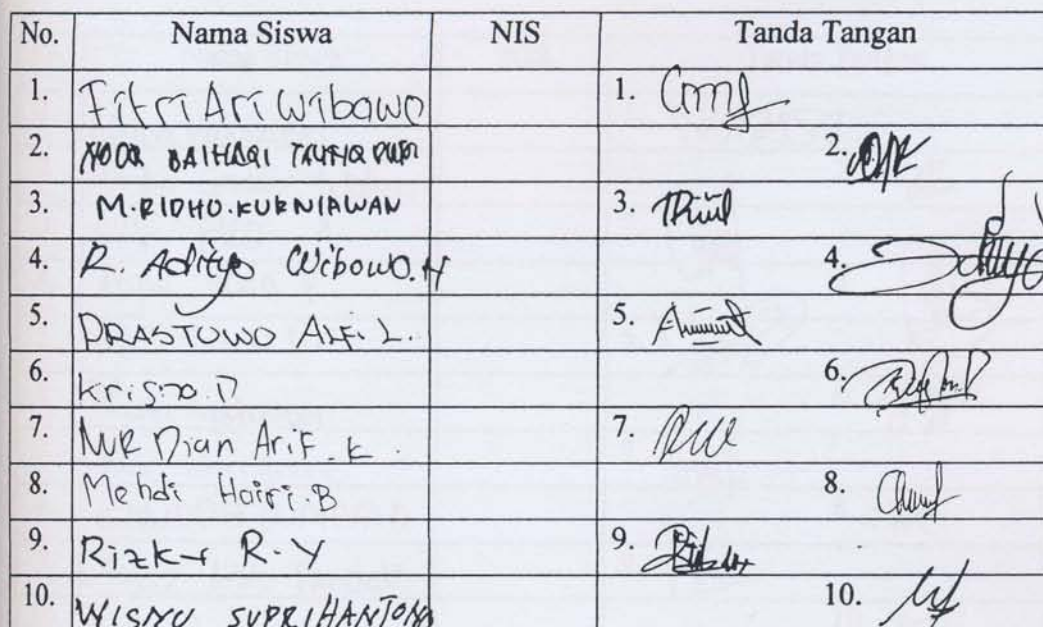 No. Nama Siswa NIS Tanda Tangan
1. Fitri Ari Wibowo 1.
2. NOOR BAIHAQI 2.
3. M.RIDHO.KURNIAWAN 3.
4. R. Aditya Wibowo.H 4.
5. PRASTOWO ALF. L. 5.
6. Krisna.D 6.
7. NUR Dian Arif. K. 7.
8. Mehdi Hoiri.B 8.
9. Rizky R.Y 9.
10. WISNU 10.